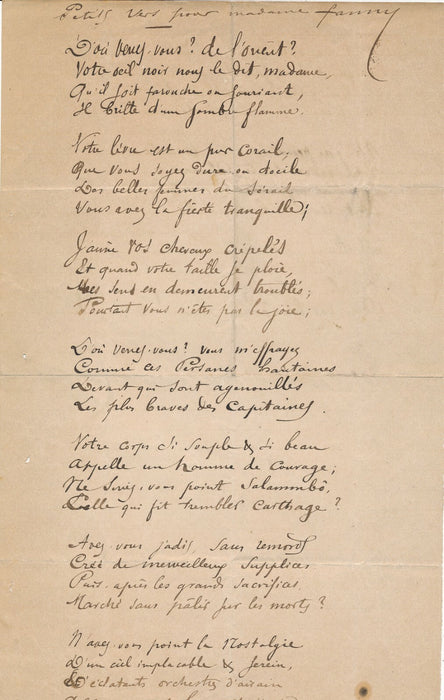 Petits vers pour madame fanny
D'où venez-vous? de l'orient?
Votre œil noir nous le dit, madame,
Qu'il soit farouche ou souriant,
Il brille d'une sombre flamme.
Votre lèvre est un pur corail,
Que vous soyez dure ou docile
Des belles femmes du Sérail
Vous avez la fierté tranquille;
J'aime vos cheveux crêpelés
Et quand votre taille se ploie,
Mes sens en demeurent troublés;
Pourtant vous n'êtes pas la joie;
D'où venez-vous? vous m'effrayez
Comme ces Persanes hautaines
Devant qui sont agenouillés
Les plus braves des Capitaines.
Votre corps si souple & si beau
Appelle un homme de courage;
Ne seriez-vous point Salammbô,
Celle qui fit trembler Carthage?
Avez-vous jadis, sans remords
Créé de merveilleux supplices
Puis, après les grands sacrifices
Marché sans pâlir sur les morts?
N'avez-vous point la Nostalgie
D'un ciel implacable & serein,
D'éclatants orchestres d'airain